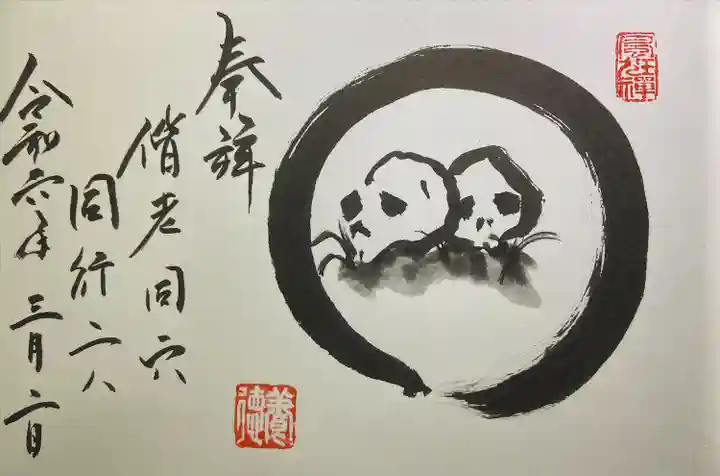 奉拝
偕老同穴
同行二人
令和六年三月二日
養德